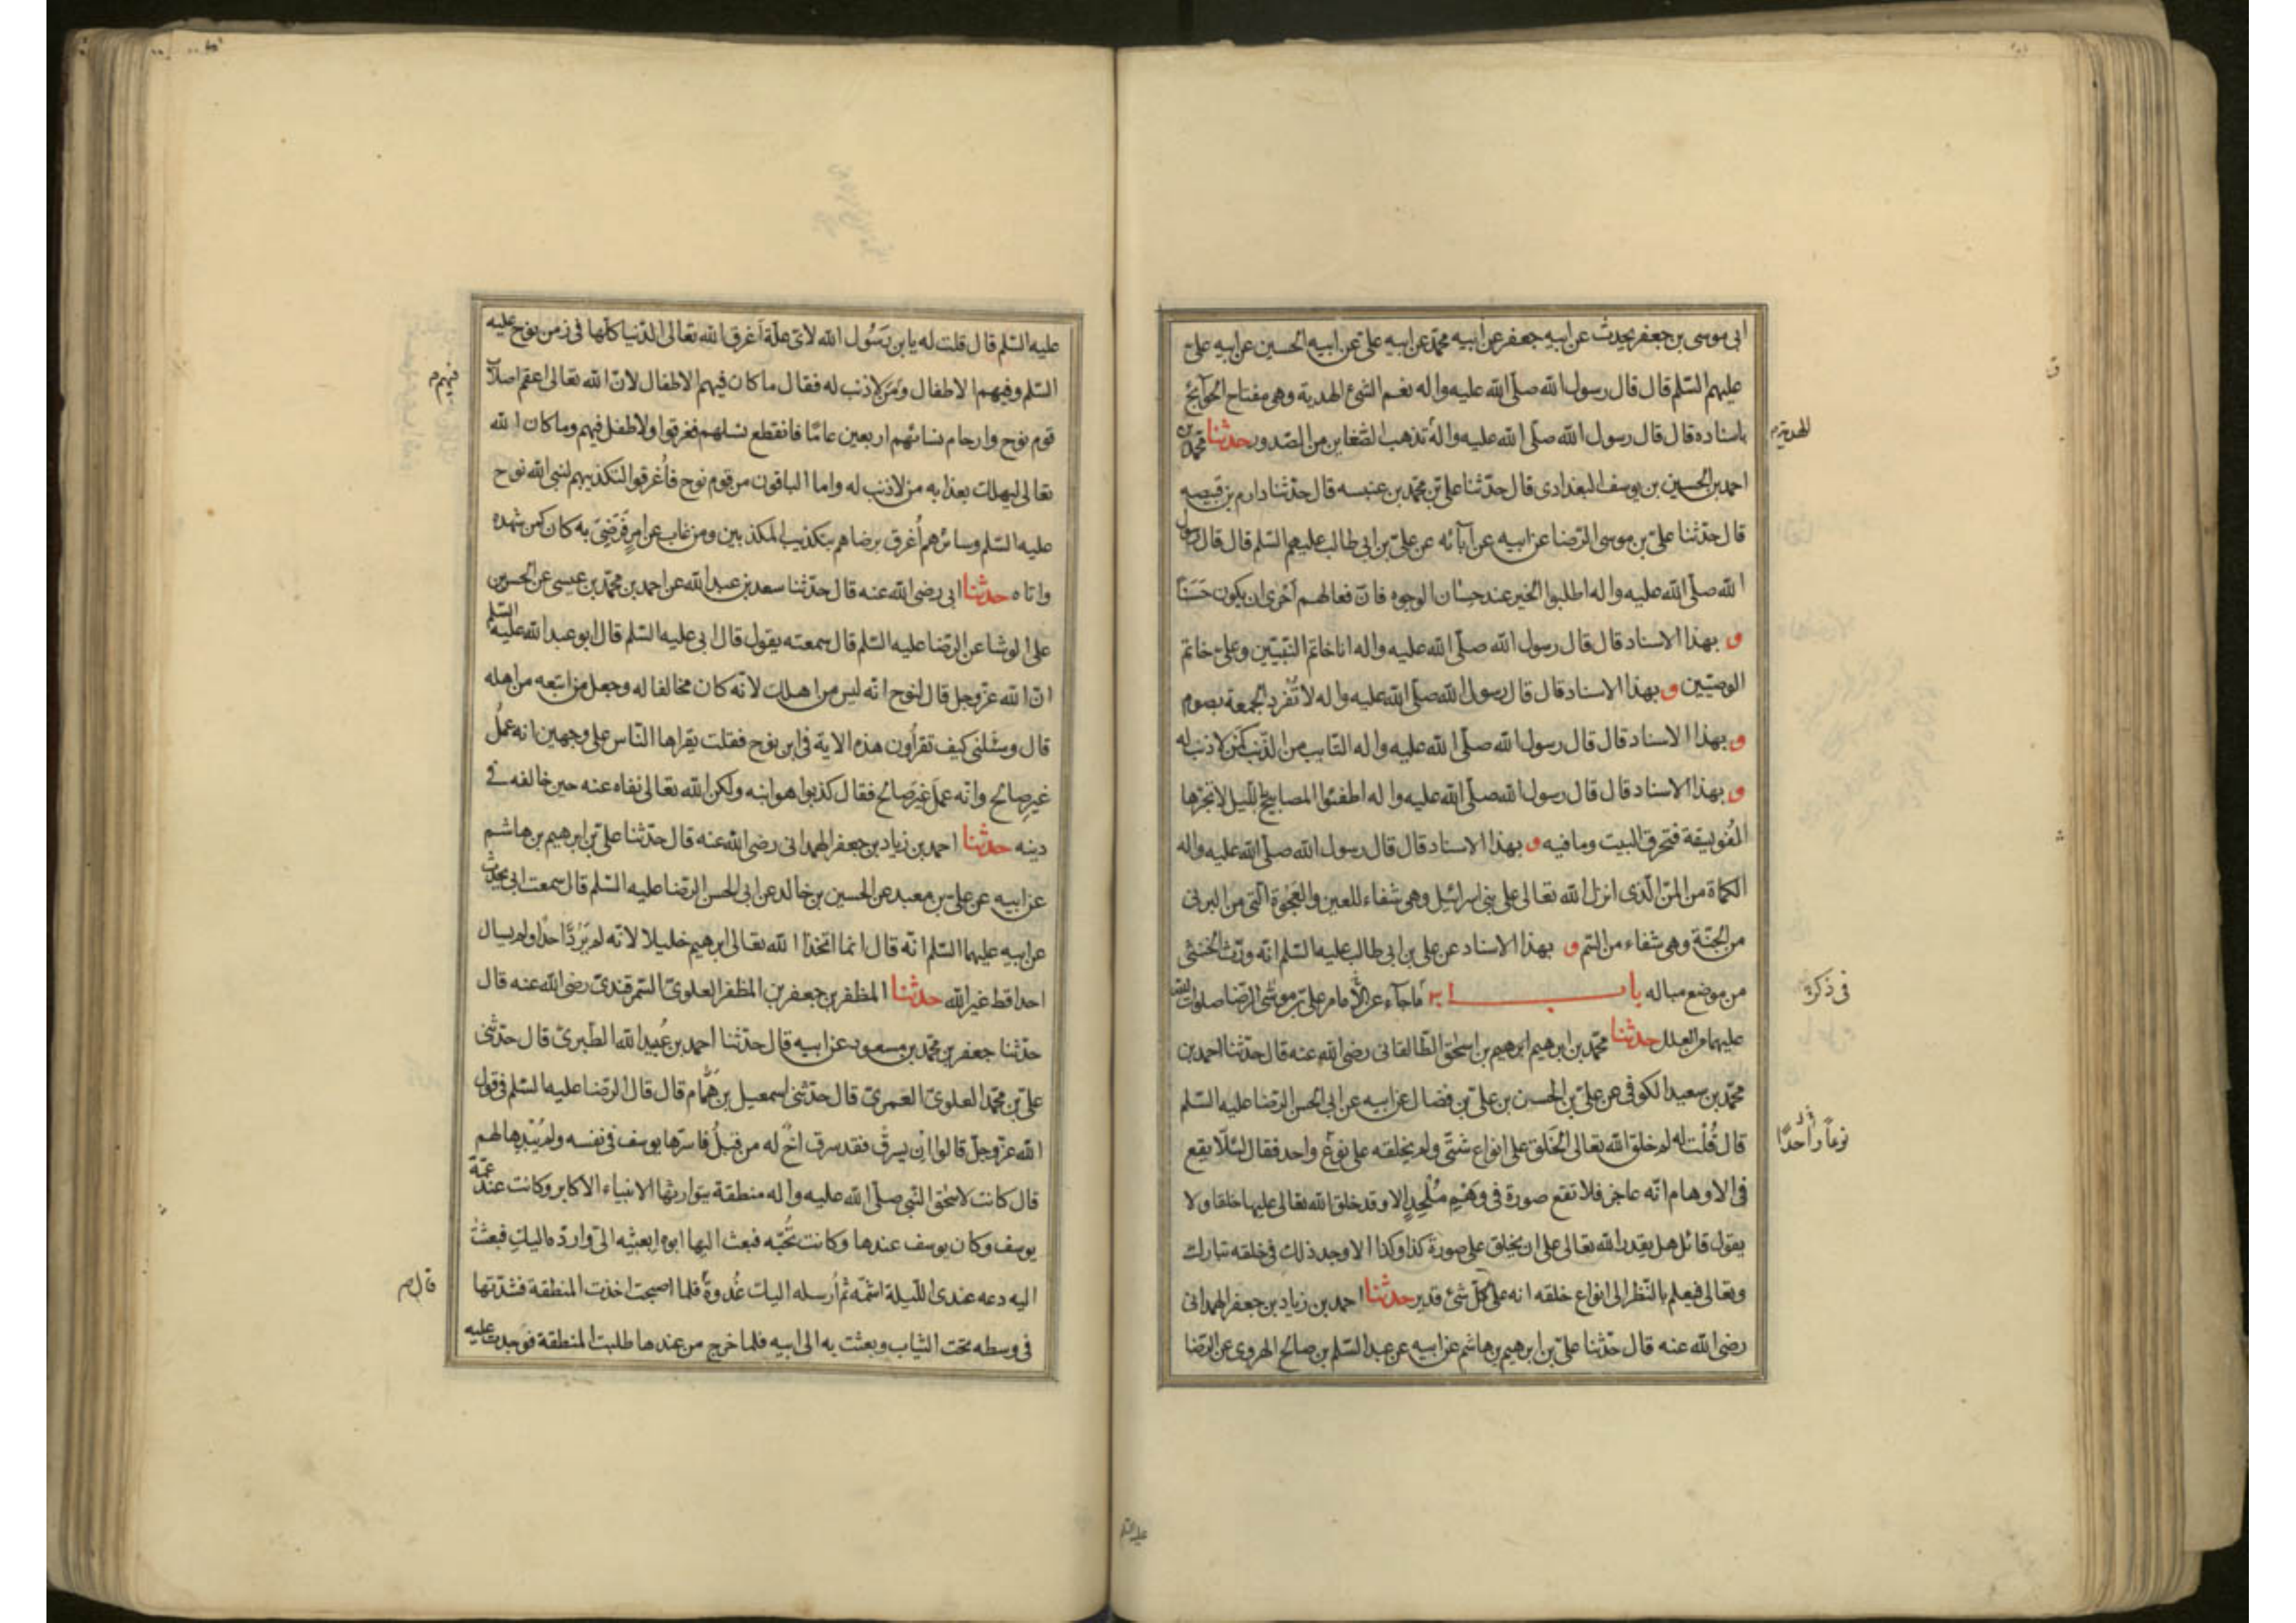 ابى موسى بن جعفر يحدث عن ابيه جعفر عن ابيه محمّد عن ابيه علىّ عن ابيه الحسين عن ابيه علىّ
عليهم السّلم قال قال رسول الله صلّى الله عليه واله نعم الشئ الهدية وهى مفتاح الحوآئج
باسناده قال قال رسول الله صلّى الله عليه واله تذهب الضّغاين من الصّدور حدثنا محمّد بن
احمد بن الحسين بن يوسف البغدادى قال حدّثنا علىّ بن محمّد بن عنبسه قال حدّثنا دارم بن قبيصه
قال حدّثنا علىّ بن موسى الرّضا عن ابيه عن آبائه عن علىّ بن ابى طالب عليهم السّلم قال قال رسول
الله صلّى الله عليه واله اطلبوا الخير عند حِسٰان الوجوه فانّ فعالهم اَحْرى ان يكون حَسَنًا
و بهذا الاسناد قال قال رسول الله صلّى الله عليه واله انا خاتم النّبيّين وعلىّ خاتم
الوصيّين و بهذا الاسناد قال قال رسول الله صلّى الله عليه واله لا تُفرد الجمعة بصوم
و بهذا الاسناد قال قال رسول الله صلّى الله عليه واله التّايب من الذّنب كمن لا ذنب له
و بهذا الاسناد قال قال رسول الله صلّى الله عليه واله اطفئوا المصابيح باللّيل لا تجرّها
الفُوَيسقة فتحرق البيت وما فيه و بهذا الاسناد قال قال رسول الله صلّى الله عليه واله
الكماة من المنّ الّذى انزل الله تعالى على بنى اسرائيل وهى شفاء للعين والعَجْوة الّتى من البرنى
من الجنّة وهى شفاء من السّم و بهذا الاسناد عن على بن ابى طالب عليه السّلم انّه ورّث الخنثى
من موضع مباله باب ما جآء عن الامام علىّ بن موسَى الرّضا صلوات الله
عليهما من العلل حدثنا محمّد بن ابرهيم ابرهيم بن اسحٰق الطّالقانى رضى الله عنه قال حدّثنا احمد بن
محمّد بن سعيد الكوفى عن علىّ بن الحسين بن علىّ بن فضال عن ابيه عن ابى الحسن الرّضا عليه السّلم
قال قُلْتُ له لم خلق الله تعالى الخَلق على انواع شتّى ولم يخلقه على نوع واحد فقال لئلّا يقع
فى الاوهام انّه عاجز فلا تقع صورة فى وَهْمِ مُلْحِدٍ الا وقد خلق الله تعالى عليها خلقا ولا
يقول قائل هل يقدر الله تعالى على ان يخلق على صورة كذا وكذا الا وجد ذلك فى خلقه تبارك
وتعالى فيعلم بالنّظر الى انواع خلقه انه على كلّ شئ قدير حدثنا احمد بن زياد بن جعفر الهمدانى
رضى الله عنه قال حدّثنا علىّ بن ابرهيم بن هاشم عن ابيه عن عبد السّلم بن صالح الهروى عن الرّضا
الهدية م
فى ذكره
نوعًا واحدًا
عليه السّلم
عليه السّلم قال قلت له يابن رَسُول الله لاىّ علّة اَغرق الله تعالى الدّنيا كلّها فى زمن نوح عليه
السّلم وفيهم الاطفال ومَن لا ذنب له فقال ما كان فيهم الاطفال لانّ الله تعالى اعقم اصلاب
قوم نوح وارحام نسائهم اربعين عامًا فانقطع نسلهم فغرقوا ولا طفل فيهم وما كان الله
تعالى ليهلك بعذابه من لا ذنب له واما الباقون من قوم نوح فاُغرقوا لتكذيبهم لنبى الله نوح
عليه السّلم وسائرهم اُغرق برضاهم بتكذيب المكذبين ومن غاب عن امرٍ فَرَضِىَ به كان كمن شهده
واتاه حدثنا ابى رضى الله عنه قال حدّثنا سعد بن عبد الله عن احمد بن محمّد بن عيسى عن الحسن بن
على الوشا عن الرّضا عليه السّلم قال سمعته يقول قال ابى عليه السّلم قال ابو عبد الله عليه السّلم
انّ الله عزّ وجل قال لنوح انّه ليس من اهلك لانّه كان مخالفا له وجعل من اتبعه من اهله
قال وسئلنى كيف تقرأون هذه الاية فى ابن نوح فقلت يقراها النّاس على وجهين انه عملُ
غيرِ صالح وانّه عمِلَ غيرَ صالح فقال كذبوا هو ابنه ولكن الله تعالى نفاه عنه حين خالفه فى
دينه حدثنا احمد بن زياد بن جعفر الهمدانى رضى الله عنه قال حدّثنا علىّ بن ابرهيم بن هاشم
عن ابيه عن علىّ بن معبد عن الحسين بن خالد عن ابى الحسن الرّضا عليه السّلم قال سمعت ابى يحدّث
عن ابيه عليهما السّلم انّه قال انما اتخذ الله تعالى ابرهيم خليلا لانّه لم يَرُدَّ احدًا ولم يسال
احدا قط غير الله حدثنا المظفر بن جعفر بن المظفر العلوىّ السّمرقندىّ رضى الله عنه قال
حدّثنا جعفر بن محمّد بن مسعود عن ابيه قال حدّثنا احمد بن عُبيد الله الطّبرىّ قال حدّثنى
علىّ بن محمّد العلوىّ العمرىّ قال حدّثنى اسمعيل بن همّام قال قال الرّضا عليه السّلم فى قول
الله عزّ وجلّ قالوا اِن يسرق فقد سرق اخٌ له من قبلُ فاسرّها يوسف فى نفسه ولم يُبْدِها لهم
قال كانت لاسحٰق النّبى صلّى الله عليه واله منطقة يتوارثها الانبياء الاكابر وكانت عند عمّة
يوسف وكان يوسف عندها وكانت تُحبّه فبعث اليها ابوه ابعثيه الىّ وارده اليك فبعثت
اليه دعه عندى اللّيلة اشمّه ثم اُرسله اليك غُدوةً فلما اصبحت اخذت المنطقة فشدّتها
فى وسطه تحت الثياب وبعثت به الى ابيه فلما خرج من عندها طلبت المنطقة فوجدت عليه
فيهم م
قال م